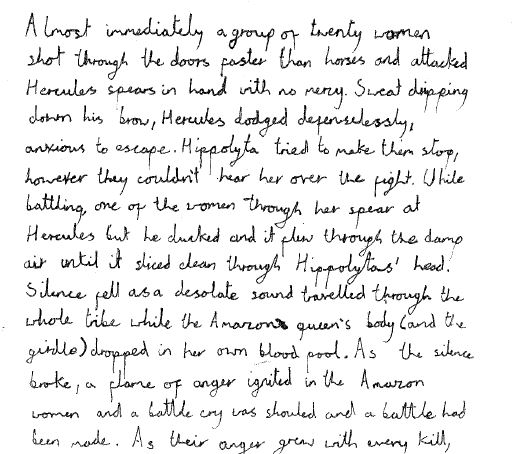 Almost immediately a group of twenty women
shot through the doors faster than horses and attacked
Hercules spears in hand with no mercy. Sweat dripping
down his brow, Hercules dodged defenselessly,
anxious to escape. Hippolyta tried to make them stop,
however they couldn't hear her over the fight. While
battling, one of the women through her spear at
Hercules but he ducked and it flew through the damp
air until it sliced clean through Hippolytas' head.
Silence fell as a desolate sound travelled through the
whole tribe while the Amazon queen's body (and the
girdle) dropped in her own blood pool. As the silence
broke, a flame of anger ignited in the Amazon
women and a battle cry was shouted and a battle had
been made. As their anger grew with every kill,